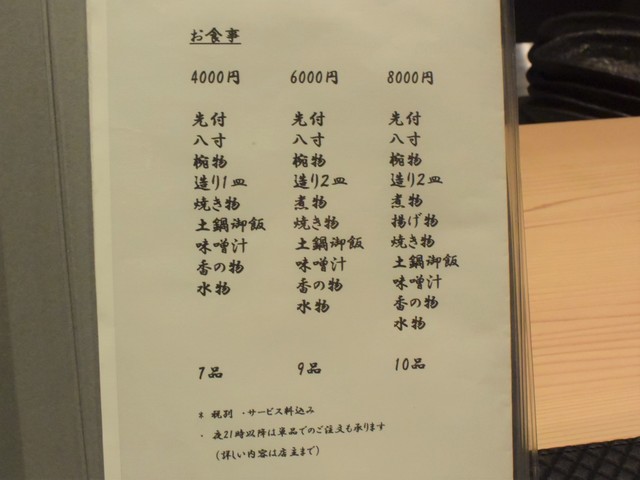 お食事
4000円 6000円 8000円
先付 先付 先付
八寸 八寸 八寸
椀物 椀物 椀物
造り1皿 造り2皿 造り2皿
焼き物 煮物 煮物
土鍋御飯 焼き物 揚げ物
味噌汁 土鍋御飯 焼き物
香の物 味噌汁 土鍋御飯
水物 香の物 味噌汁
水物 香の物
水物
7品 9品 10品
* 税別 ・サービス料込み
・ 夜21時以降は単品でのご注文も承ります
(詳しい内容は店主まで)